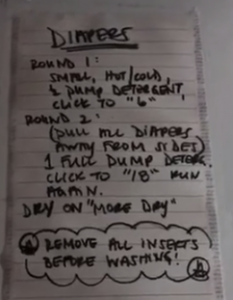 DIAPERS
ROUND 1:
SMALL, HOT/COLD,
½ DUMP DETERGENT,
CLICK TO "6"
ROUND 2:
(PULL ALL DIAPERS
AWAY FROM SIDES)
1 FULL DUMP DETERG.
CLICK TO "18" RUN
AGAIN.
DRY ON "MORE DRY"
REMOVE ALL INSERTS
BEFORE WASHING!